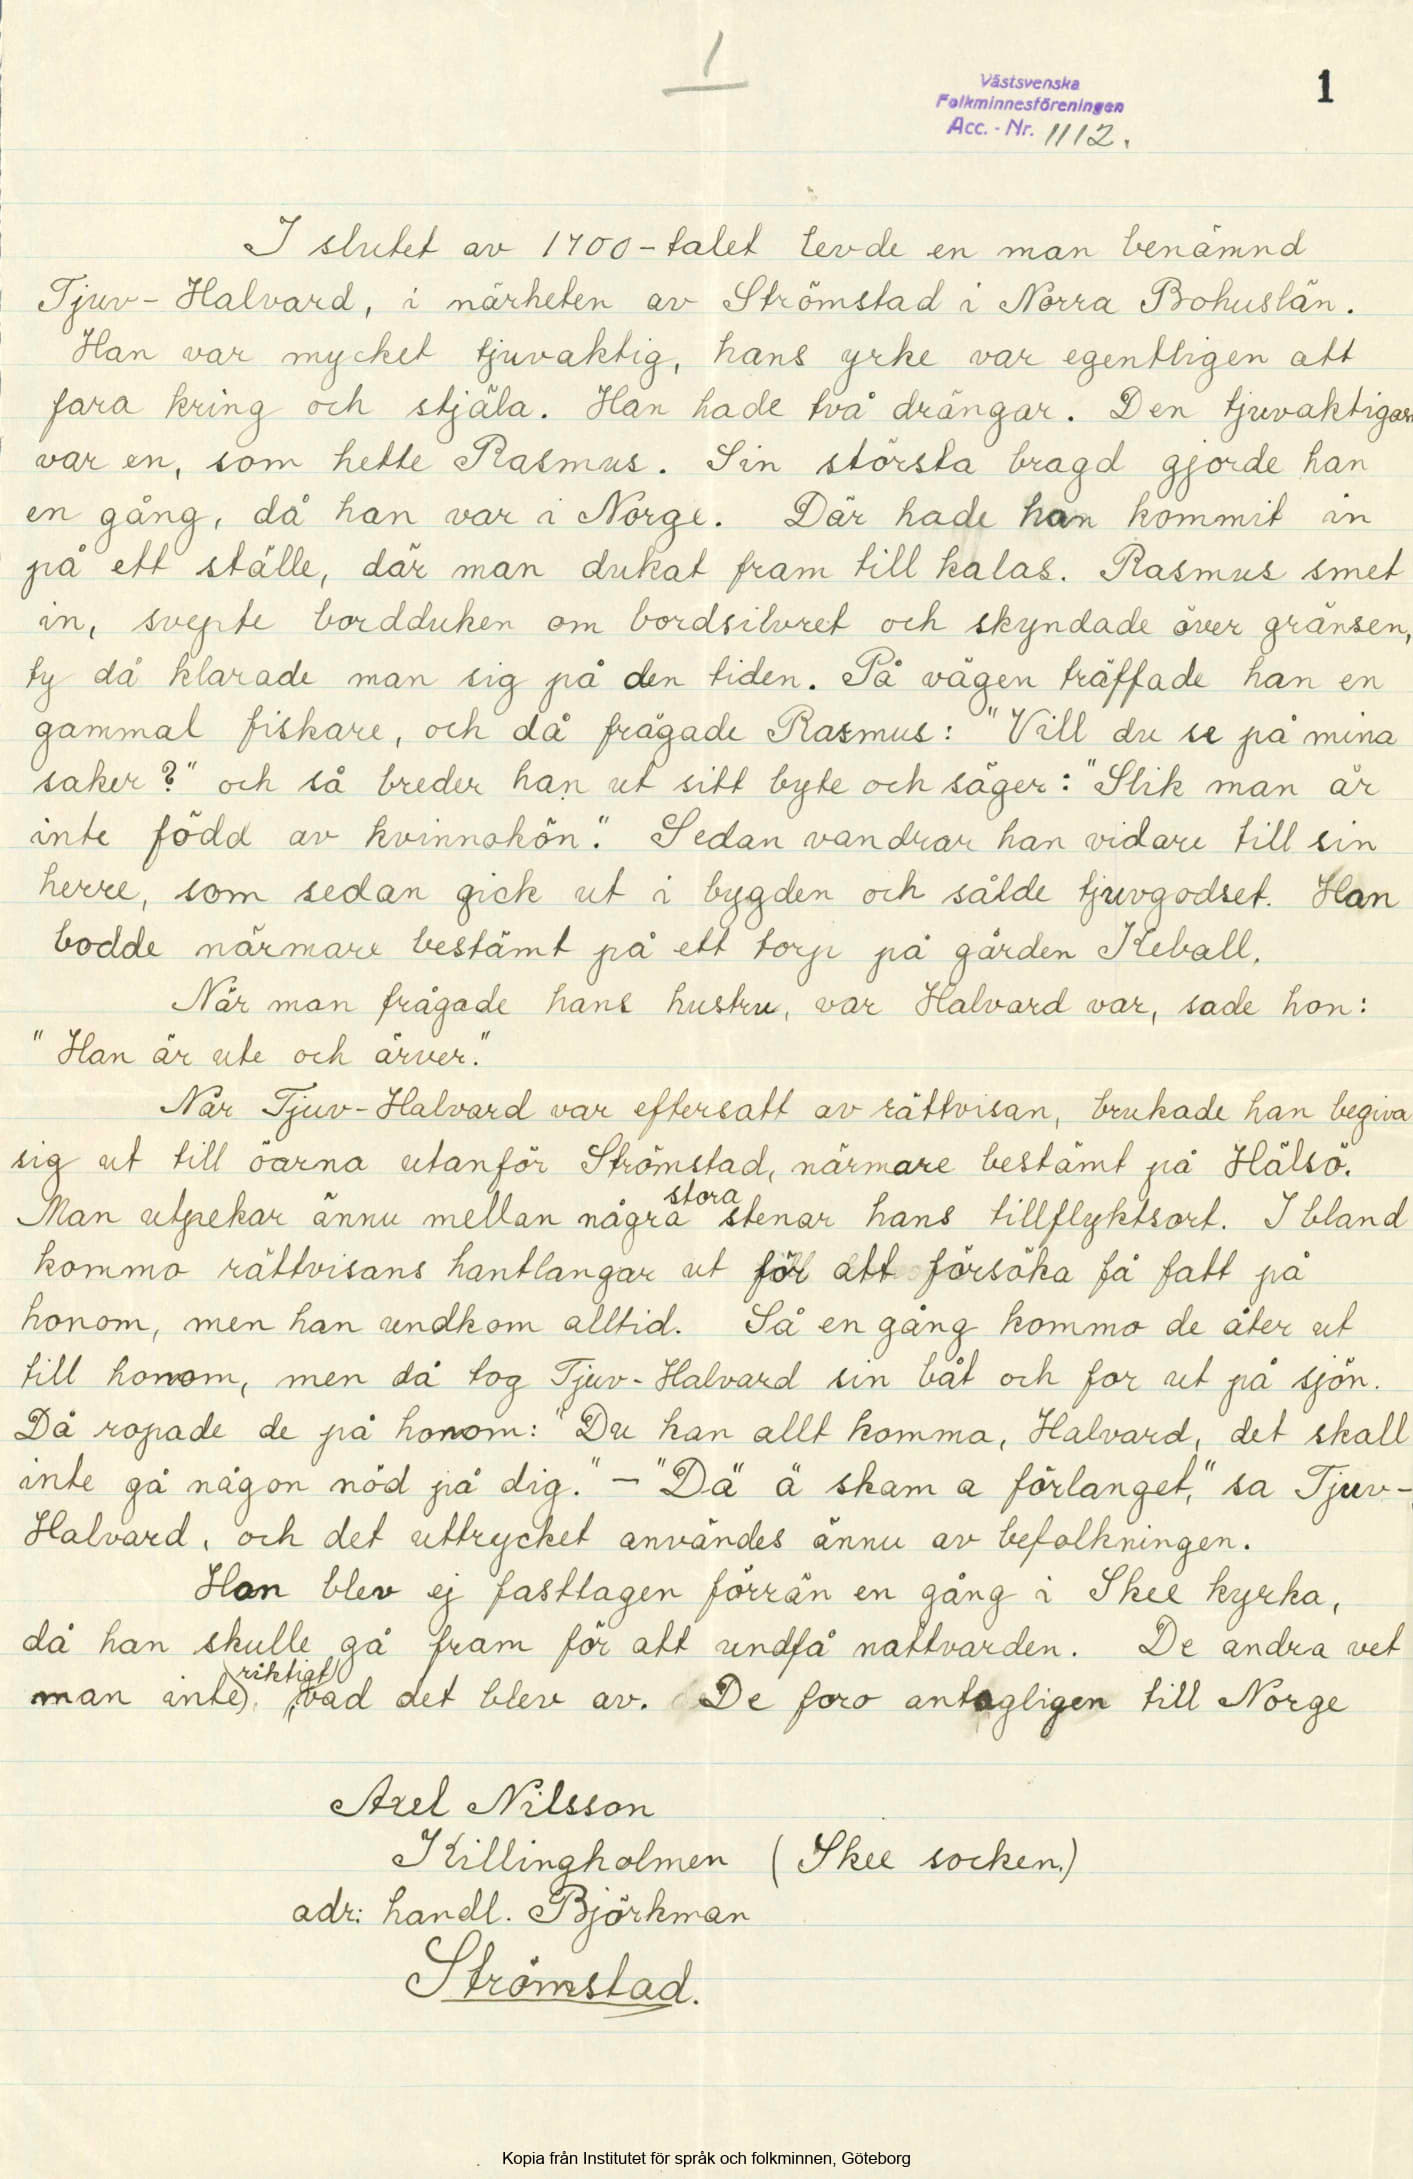 1
Västsvenska
Folkminnesföreningen
Acc. - Nr. 1112.
1
I slutet av 1700-talet levde en man benämnd
Tjuv-Halvard, i närheten av Strömstad i Norra Bohuslän.
Han var mycket tjuvaktig, hans yrke var egentligen att
fara kring och stjäla. Han hade två drängar. Den tjuvaktigas
var en, som hette Rasmus. Sin största bragd gjorde han
en gång, då han var i Norge. Där hade han kommit in
på ett ställe, där man dukat fram till kalas. Rasmus smet
in, svepte bordduken om bordsilvret och skyndade över gränsen,
ty då klarade man sig på den tiden. På vägen träffade han en
gammal fiskare, och då frågade Rasmus: "Vill du se på mina
saker?" och så breder han ut sitt byte och säger: "Slik man är
inte född av kvinnokön." Sedan vandrar han vidare till sin
herre, som sedan gick ut i bygden och sålde tjuvgodset. Han
bodde närmare bestämt på ett torp på gården Keball.
När man frågade hans hustru, var Halvard var, sade hon:
"Han är ute och ärver."
När Tjuv-Halvard var eftersatt av rättvisan, brukade han begiva
sig ut till öarna utanför Strömstad, närmare bestämt på Hälsö.
Man utpekar ännu mellan några stora stenar hans tillflyktsort. I bland
kommo rättvisans hantlangar ut för att försöka få fatt på
honom, men han undkom alltid. Så en gång kommo de åter ut
till honom, men då tog Tjuv-Halvard sin båt och for ut på sjön.
Då ropade de på honom: "Du kan allt komma, Halvard, det skall
inte gå någon nöd på dig." - "Dä ä skam a förlanget," sa Tjuv-
Halvard, och det uttrycket användes ännu av befolkningen.
Han blev ej fasttagen förrän en gång i Skee kyrka,
då han skulle gå fram för att undfå nattvarden. De andra vet
man inte riktigt, vad det blev av. De foro antagligen till Norge
Axel Nilsson
Killingholmen (Skee socken.)
adr: handl. Björkman
Strömstad.
Kopia från Institutet för språk och folkminnen, Göteborg